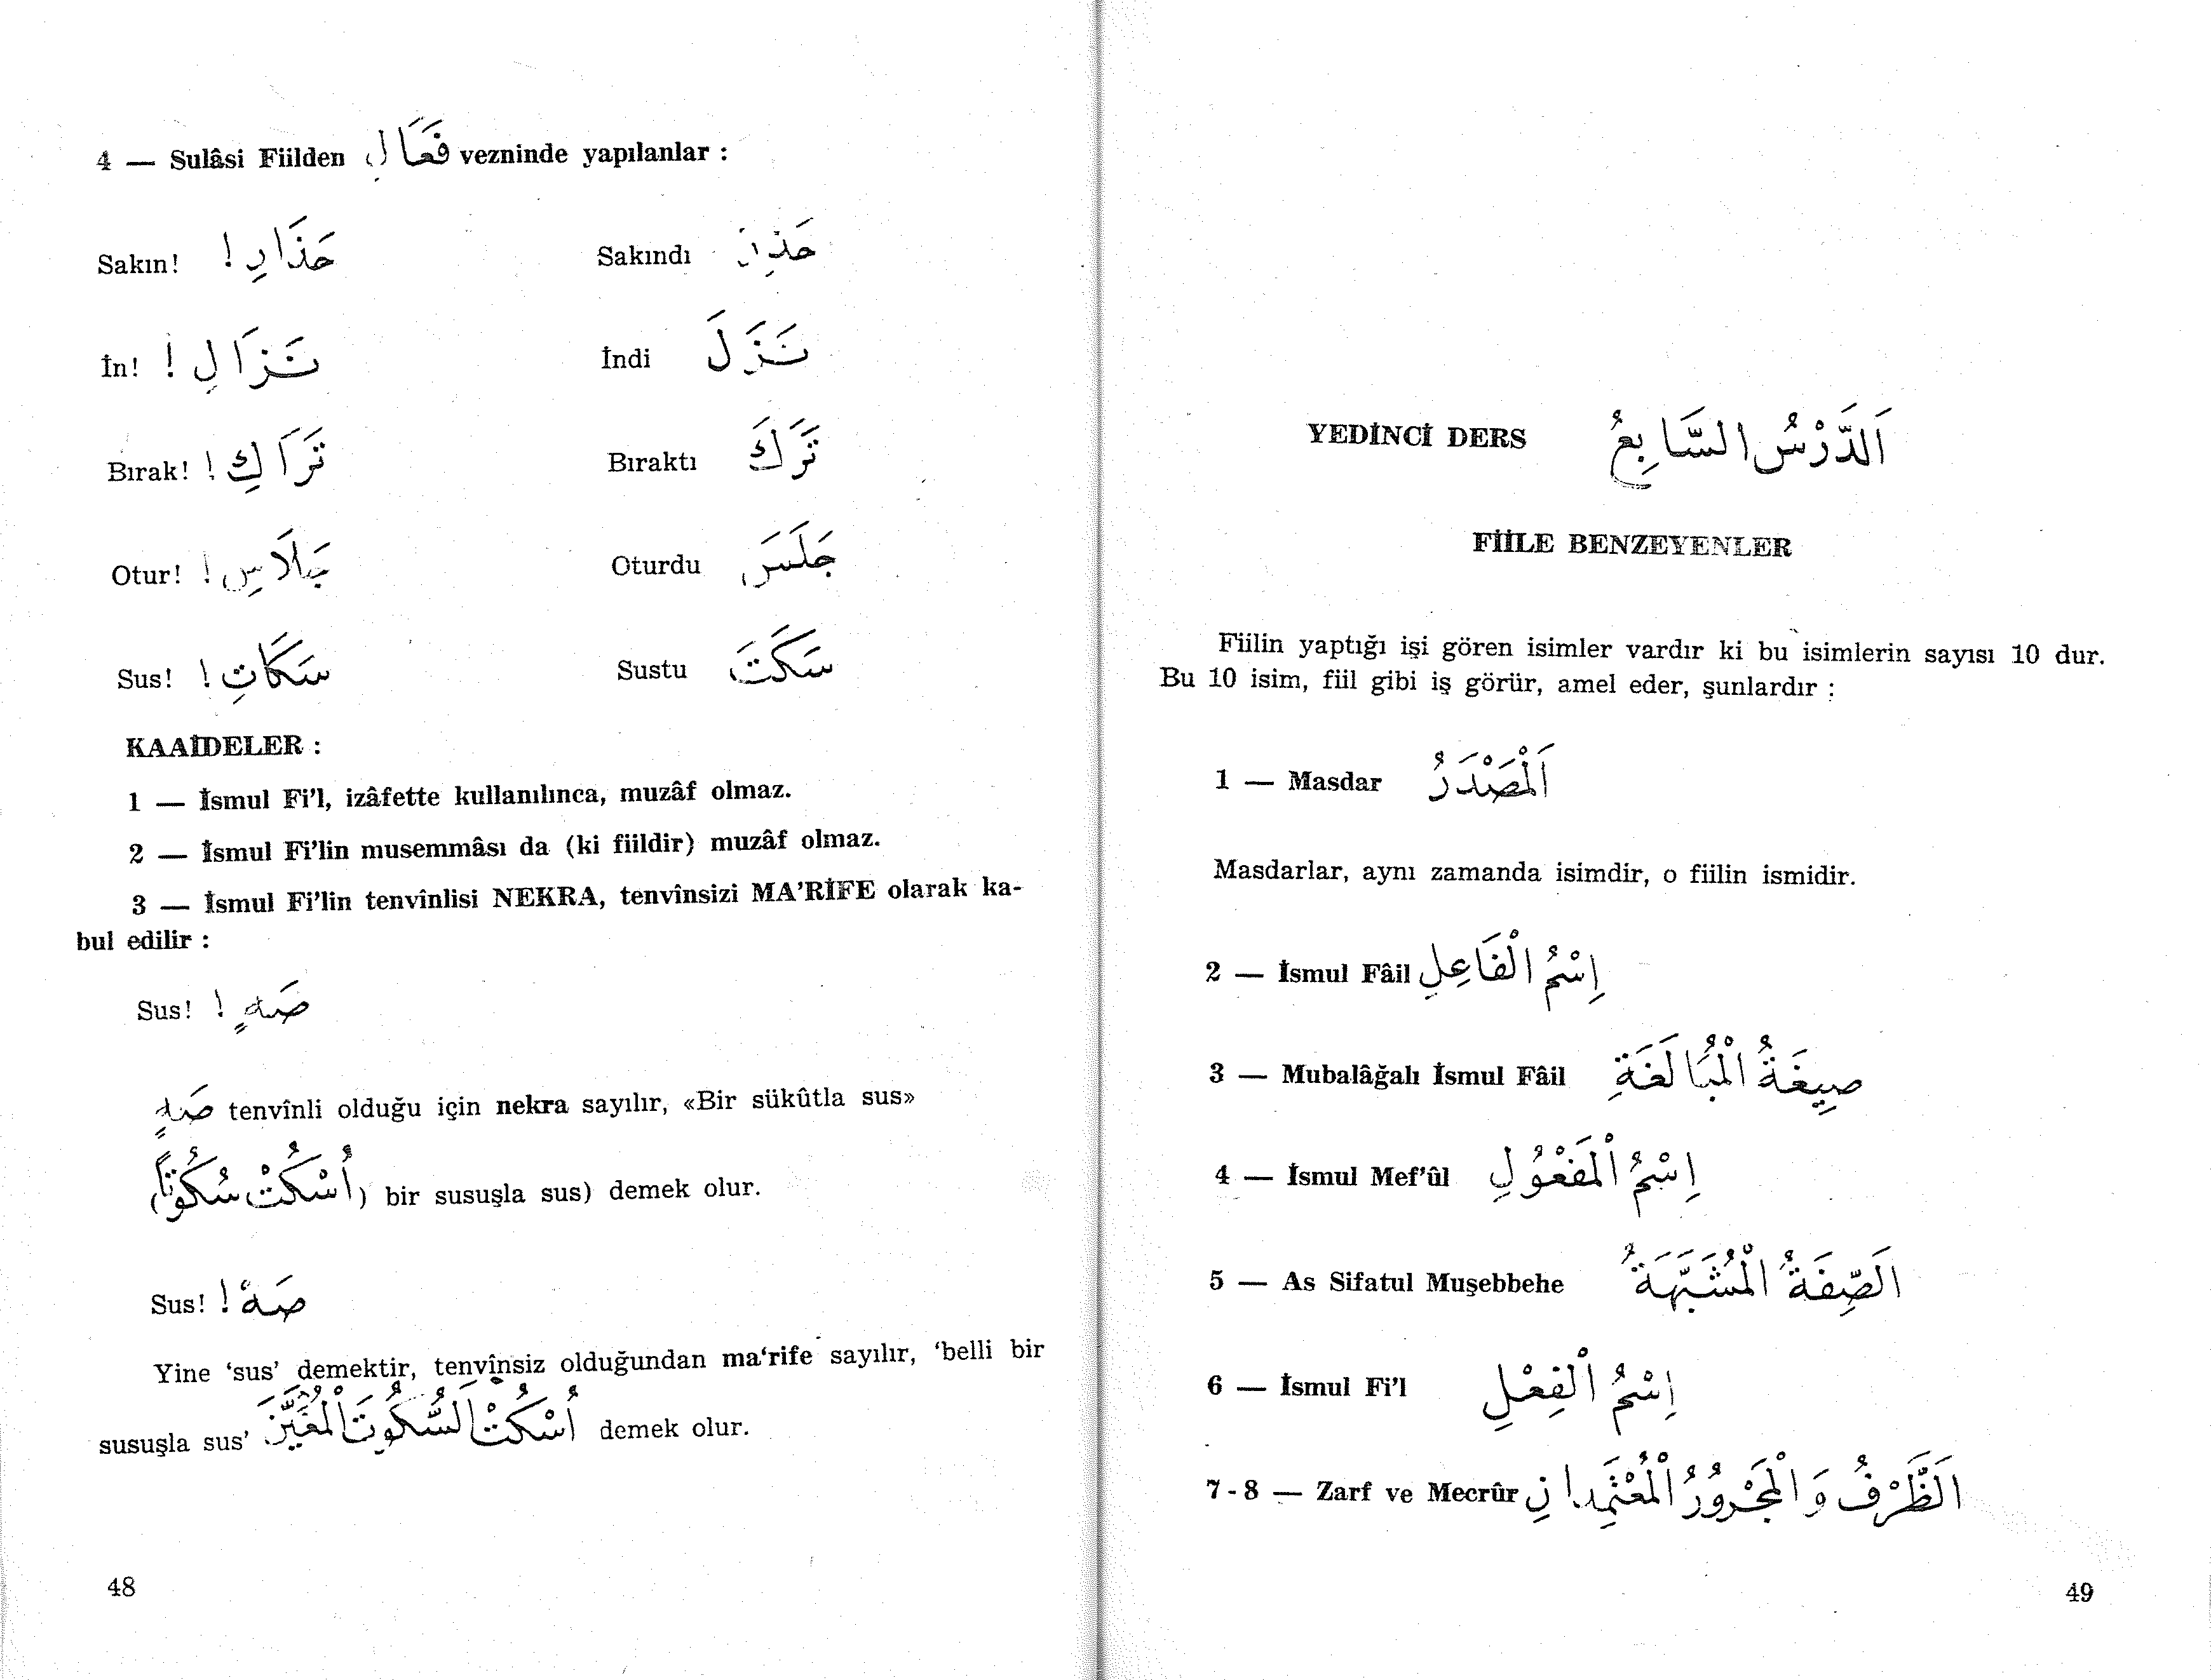 4 — Sulâsi Fiilden فَعَالِ vezninde yapılanlar :
Sakın! حَذَارِ ! Sakındı حَذِرَ
İn! نَزَالِ ! İndi نَزَلَ
Bırak! تَرَاكِ ! Bıraktı تَرَكَ
Otur! جَلَاسِ ! Oturdu جَلَسَ
Sus! سَكَاتِ ! Sustu سَكَتَ
KAAİDELER :
1 — İsmul Fi'l, izâfette kullanılınca, muzâf olmaz.
2 — İsmul Fi'lin musemmâsı da (ki fiildir) muzâf olmaz.
3 — İsmul Fi'lin tenvînlisi NEKRA, tenvînsizi MA'RİFE olarak ka-
bul edilir :
Sus! صَهٍ !
صَهٍ tenvînli olduğu için nekra sayılır, «Bir sükûtla sus»
(أُسْكُتْ سُكُوتًا) bir sususla sus) demek olur.
Sus! صَهْ !
Yine 'sus' demektir, tenvînsiz olduğundan ma'rife sayılır, 'belli bir
sususla sus' أُسْكُتْ اَلسُّكُوتَ الْمُعَيَّنَ demek olur.
48
YEDİNCİ DERS اَلدَّرْسُ السَّابِعُ
FİİLE BENZEYENLER
Fiilin yaptığı işi gören isimler vardır ki bu isimlerin sayısı 10 dur.
Bu 10 isim, fiil gibi iş görür, amel eder, şunlardır :
1 — Masdar اَلْمَصْدَرُ
Masdarlar, aynı zamanda isimdir, o fiilin ismidir.
2 — İsmul Fâil إِسْمُ الْفَاعِلِ
3 — Mubalâğalı İsmul Fâil صِيغَةُ الْمُبَالَغَةِ
4 — İsmul Mef'ûl إِسْمُ الْمَفْعُولِ
5 — As Sifatul Muşebbehe الصِّفَةُ الْمُشَبَّهَةُ
6 — İsmul Fi'l إِسْمُ الْفِعْلِ
7 - 8 — Zarf ve Mecrûr اَلظَّرْفُ وَالْمَجْرُورُ الْمُعْتَمِدَانِ
49